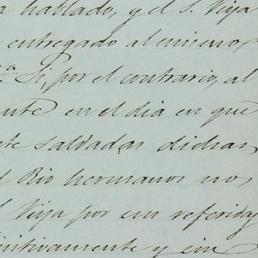 hablado, y el S. Vija
entregado al mismo
Si, por el contrario, al
en el dia en que
saldadas dichas
Rio hermanos no
Vija por su referida
initivamente y sin